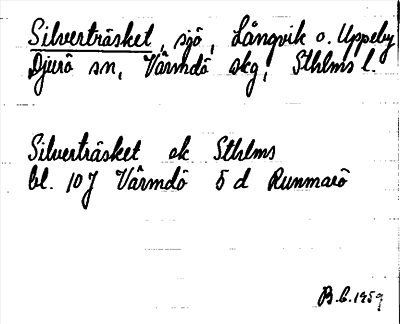 Silverträsket, sjö, Långvik o. Uppeby
Djurö sn, Värmdö skg, Sthlms l.
Silverträsket ek Sthlms
bl. 10J Värmdö 5 d Runmarö
B.C. 1959